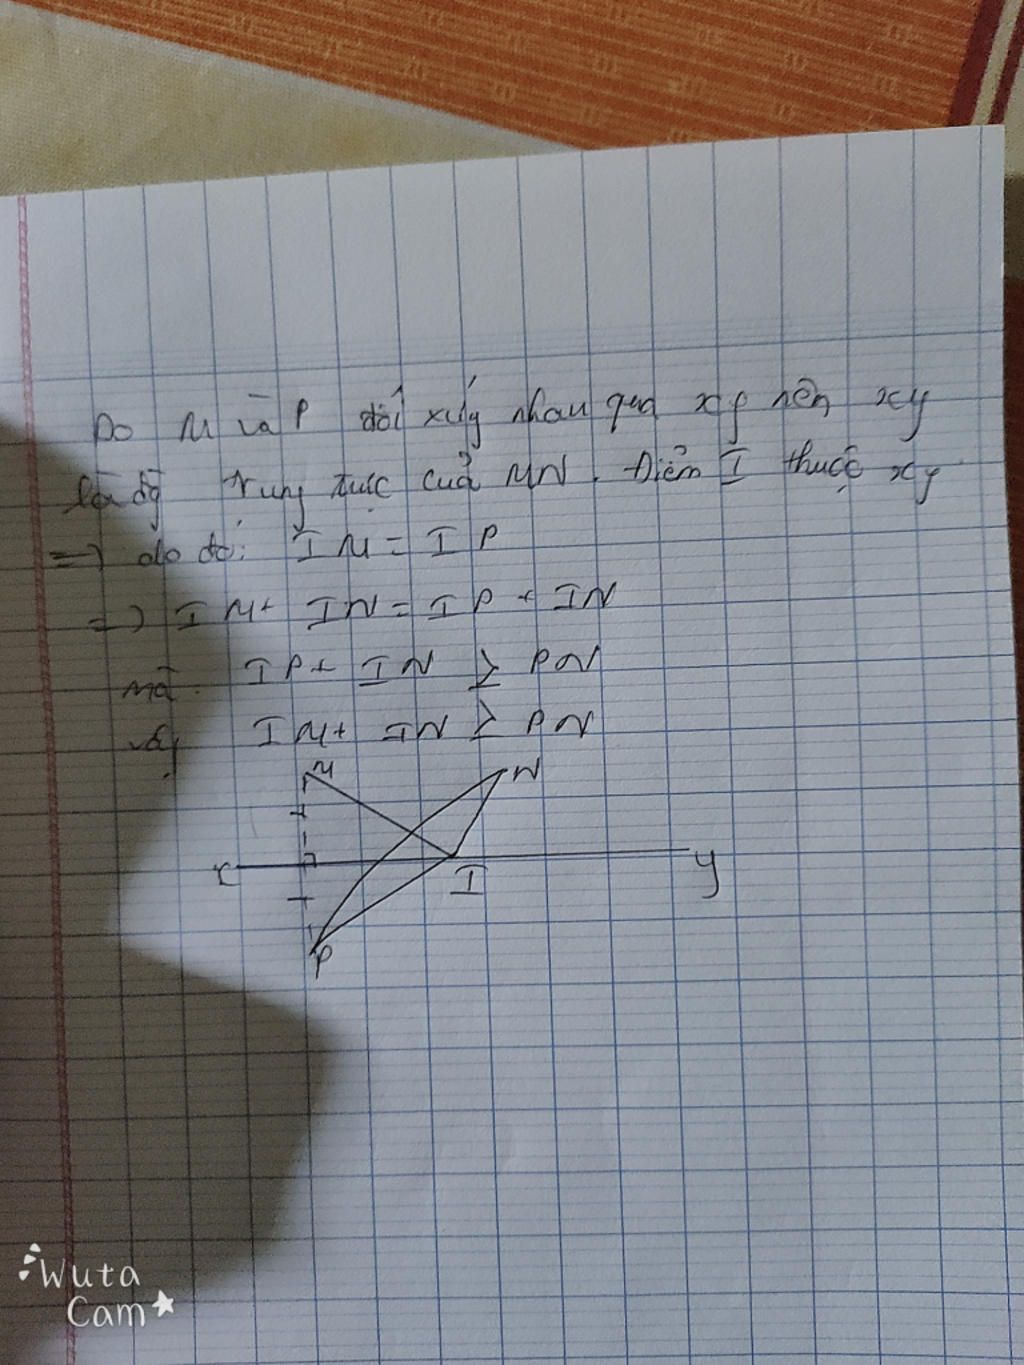 Do M và P đối xứng nhau qua xy nên xy
là đg trung trực của MN. Điểm I thuộc xy
=> do đó: IM = IP
=> IM + IN = IP + IN
mà IP + IN ≥ PN
vậy IM + IN ≥ PN
M N
x I y
P
Wuta
Cam